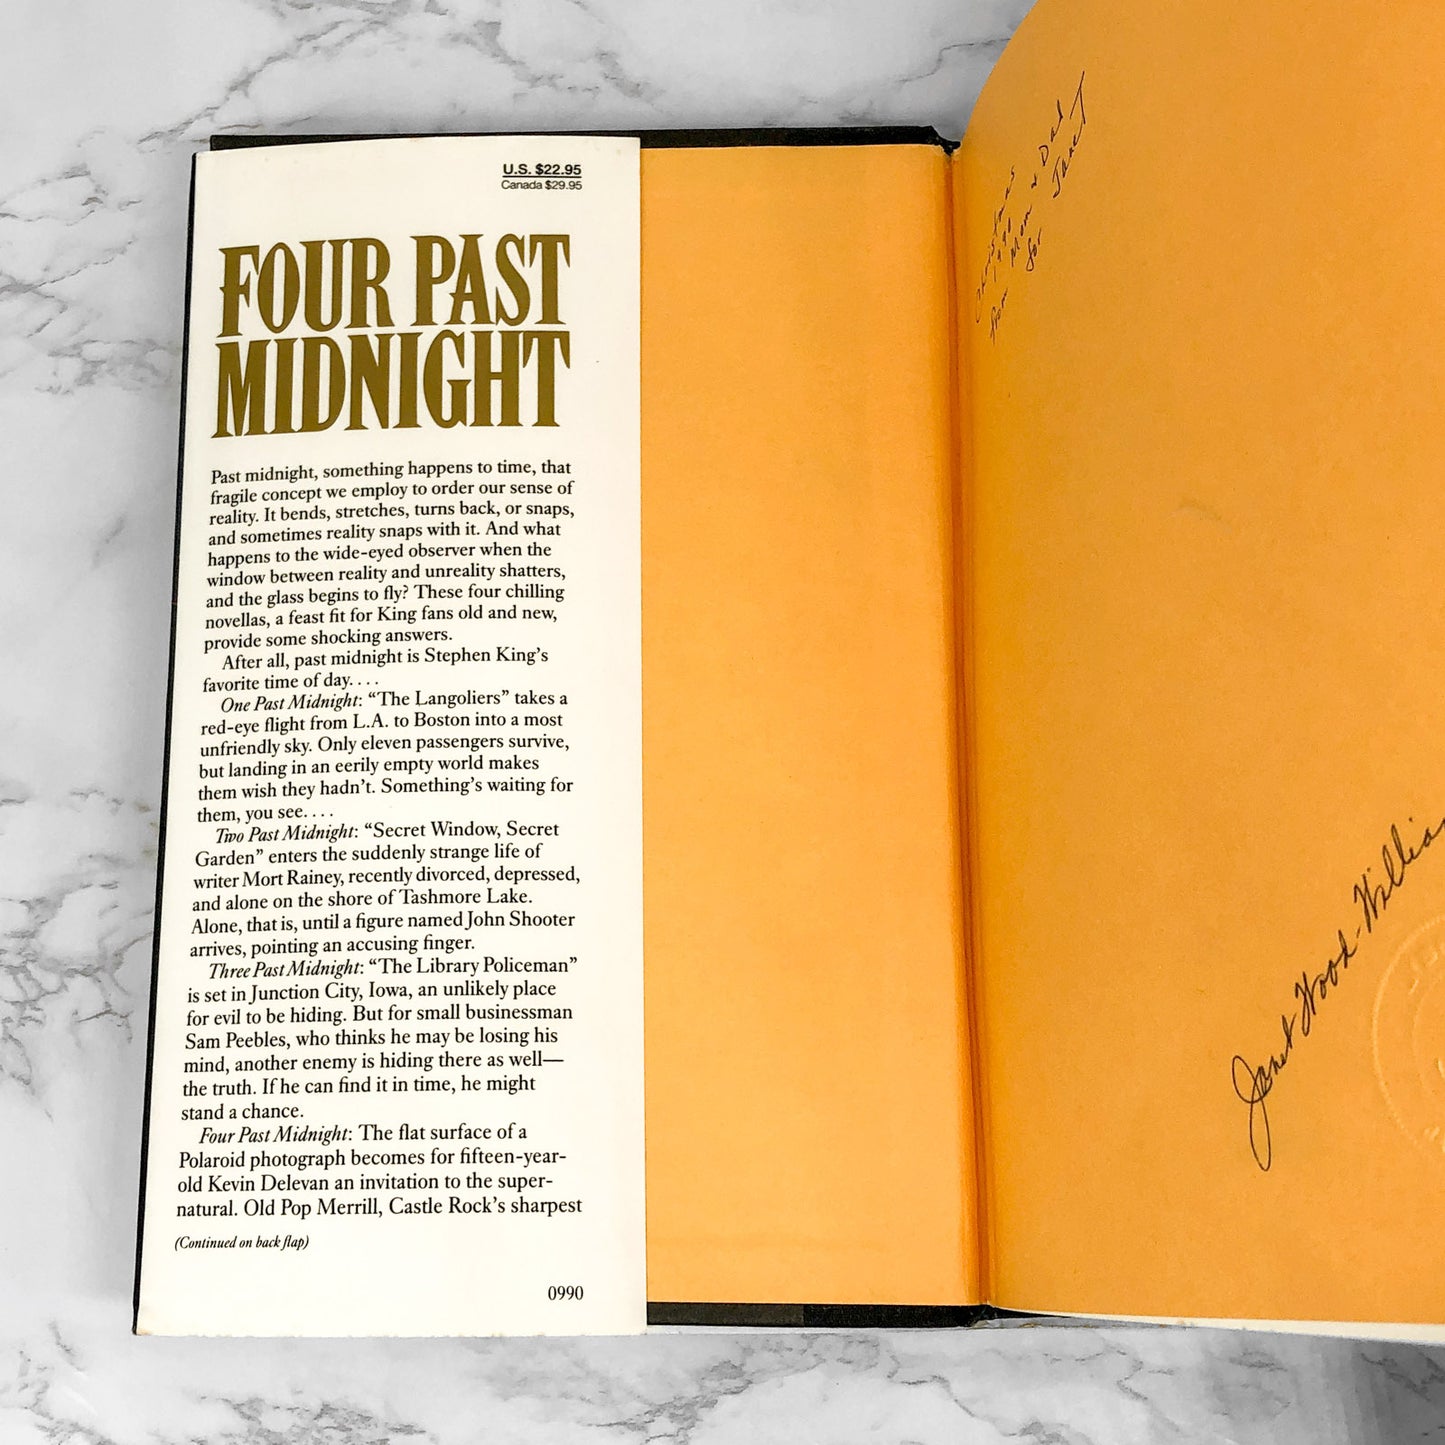 U.S. $22.95
Canada $29.95
FOUR PAST
MIDNIGHT
Past midnight, something happens to time, that
fragile concept we employ to order our sense of
reality. It bends, stretches, turns back, or snaps,
and sometimes reality snaps with it. And what
happens to the wide-eyed observer when the
window between reality and unreality shatters,
and the glass begins to fly? These four chilling
novellas, a feast fit for King fans old and new,
provide some shocking answers.
After all, past midnight is Stephen King's
favorite time of day. . . .
One Past Midnight: “The Langoliers” takes a
red-eye flight from L.A. to Boston into a most
unfriendly sky. Only eleven passengers survive,
but landing in an eerily empty world makes
them wish they hadn't. Something's waiting for
them, you see. . . .
Two Past Midnight: “Secret Window, Secret
Garden” enters the suddenly strange life of
writer Mort Rainey, recently divorced, depressed,
and alone on the shore of Tashmore Lake.
Alone, that is, until a figure named John Shooter
arrives, pointing an accusing finger.
Three Past Midnight: “The Library Policeman”
is set in Junction City, Iowa, an unlikely place
for evil to be hiding. But for small businessman
Sam Peebles, who thinks he may be losing his
mind, another enemy is hiding there as well—
the truth. If he can find it in time, he might
stand a chance.
Four Past Midnight: The flat surface of a
Polaroid photograph becomes for fifteen-year-
old Kevin Delevan an invitation to the super-
natural. Old Pop Merrill, Castle Rock's sharpest
(Continued on back flap)
0990
Christmas
1990
from Mom & Dad
for Janet
Janet Wood-Willia